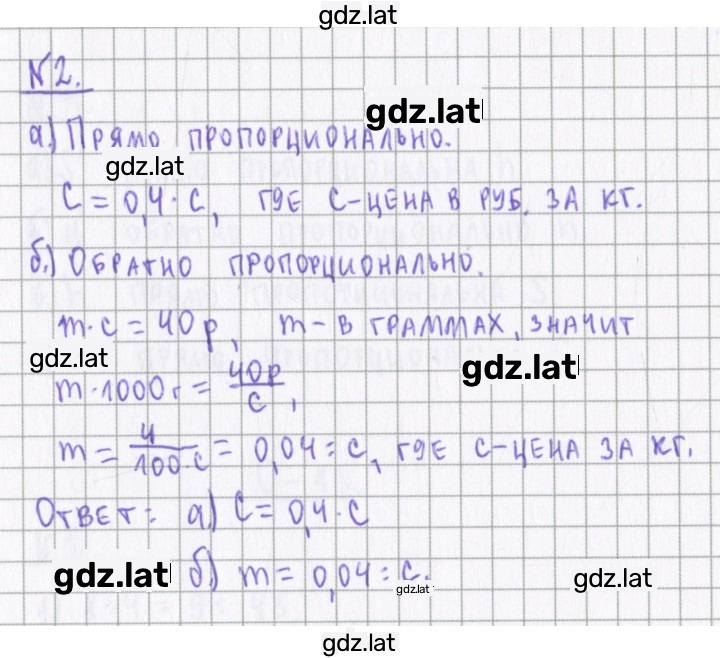 gdz.lat
№2.
gdz.lat
а) Прямо пропорционально.
gdz.lat
C = 0,4 · c, где c - цена в руб. за кг.
б.) Обратно пропорционально.
m · c = 40р, m - в граммах, значит
gdz.lat
gdz.lat
m · 1000г = 40р/c,
m = 4/100·c = 0,04 : c, где c - цена за кг.
Ответ: а) C = 0,4 · c
gdz.lat
б) m = 0,04 : c.
gdz.lat
gdz.lat
gdz.lat